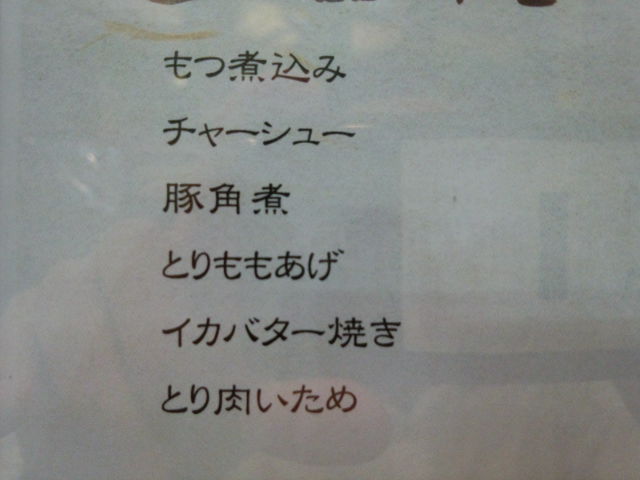 もつ煮込み
チャーシュー
豚角煮
とりももあげ
イカバター焼き
とり肉いため